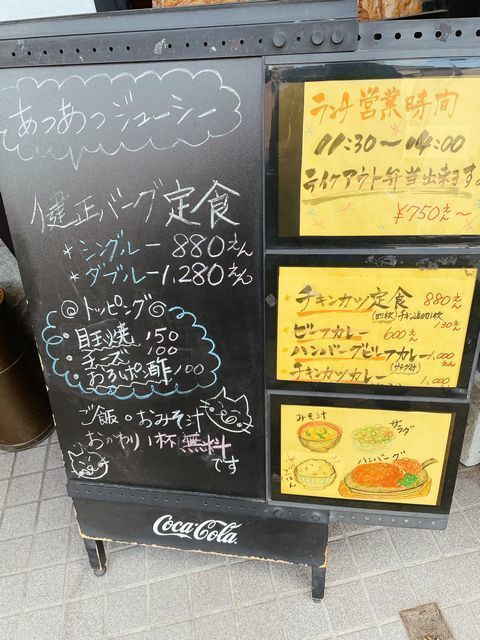 あつあつジューシー
健正バーグ定食
* シングルー 880えん
* ダブルー 1,280えん
◎トッピング◎
・目玉焼 150
・チーズ 100
・おろしポン酢 100
ご飯。おみそ汁
おかわり1杯無料です
ランチ営業時間
11:30〜14:00
テイクアウト弁当出来ます。
¥750〜
チキンカツ定食 880えん
(カツ1枚)チキン追加1枚 130えん
ビーフカレー 600えん
ハンバーグビーフカレー 1,000えん
(サラダ付)
チキンカツカレー 1,000
みそ汁
サラダ
ごはん
ハンバーグ
Coca-Cola